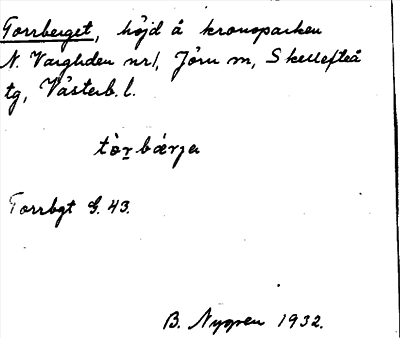 Torrberget, höjd å kronoparken
N. Vargliden nr 1, Jörn m, Skellefteå
tg, Västerb. l.
tòr̲bǽrjə
Torrbgt G. 43.
B. Nygren 1932.